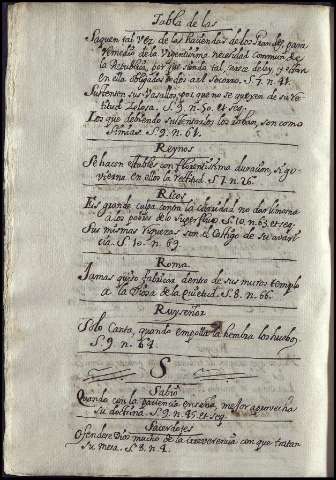 Tabla de las
Saquen tal vez de las Haziendas de los Grandes para
remedio de la Urgentissima necesidad Commun de
la Republica, por que siendo tal, nace de ley, y estan
en ella obligados todos al Socorro. S. 7. n. 41.
Sustenten sus Vasallos por que no se quexen de su Ver
titud Zelosa. S. 9. n. 50. et seq.
Los que debiendo sustentarlos los roban, son como
Simias. S. 9. n. 61.
Reynos
Se hacen estables con florentissima duracion, si go-
vierna en ellos la rectitud. S. 7. n. 26.
Ricos
Es grande culpa contra la charidad no dar limosna
a los pobres de lo superfluo. S. 10. n. 63. et seq.
Sus mismas riquezas son el Castigo de su avari-
cia. S. 10. n. 69.
Roma
Jamas quiso fabricar dentro de sus muros templo
a la Diosa de la quietud. S. 8. n. 66.
Ruyseñor
Solo Canta, quando empolla la hembra los huebos
S. 9. n. 64.
S
Sabio
Quando con la paciencia enseña, mejor aprovecha
su doctrina. S. 9. n. 45. et seq.
Sacerdotes
Ofendese Dios mucho de la irreverencia con que tratan
su mesa. S. 8. n. 4.